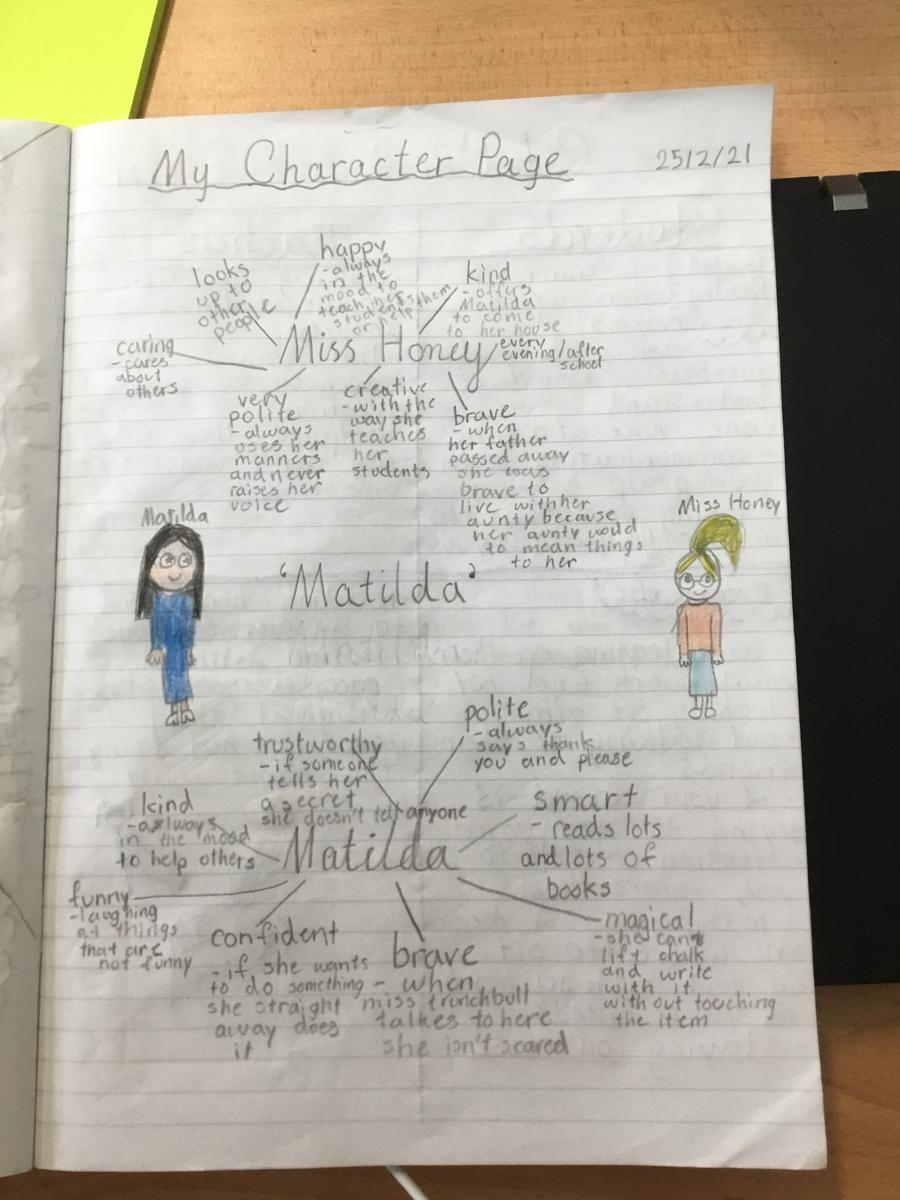 My Character Page
25/2/21
looks
up to
other
people
happy
- always
in the
mood to
teach her
students
or help them
kind
- offers
Matilda
to come
to her house
every
evening/after
school
caring
- cares
about
others
Miss Honey
very
polite
- always
uses her
manners
and never
raises her
voice
creative
- with the
way she
teaches
her
students
brave
- when
her father
passed away
she was
brave to
live with her
aunty because
her aunty would
to mean things
to her
Matilda
Miss Honey
'Matilda'
trustworthy
- if someone
tells her
a secret
she doesn't tell anyone
polite
- always
says thank
you and please
kind
- always
in the mood
to help others
smart
- reads lots
and lots of
books
Matilda
funny
- laughing
at things
that are
not funny
confident
- if she wants
to do something
she straight
away does
it
brave
- when
miss trunchbull
talkes to here
she isn't scared
magical
- she can
lift chalk
and write
with it
with out touching
the item